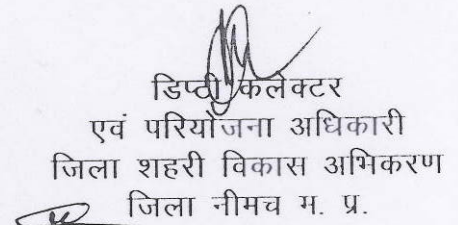 डिप्टी कलेक्टर
एवं परियोजना अधिकारी
जिला शहरी विकास अभिकरण
जिला नीमच म. प्र.